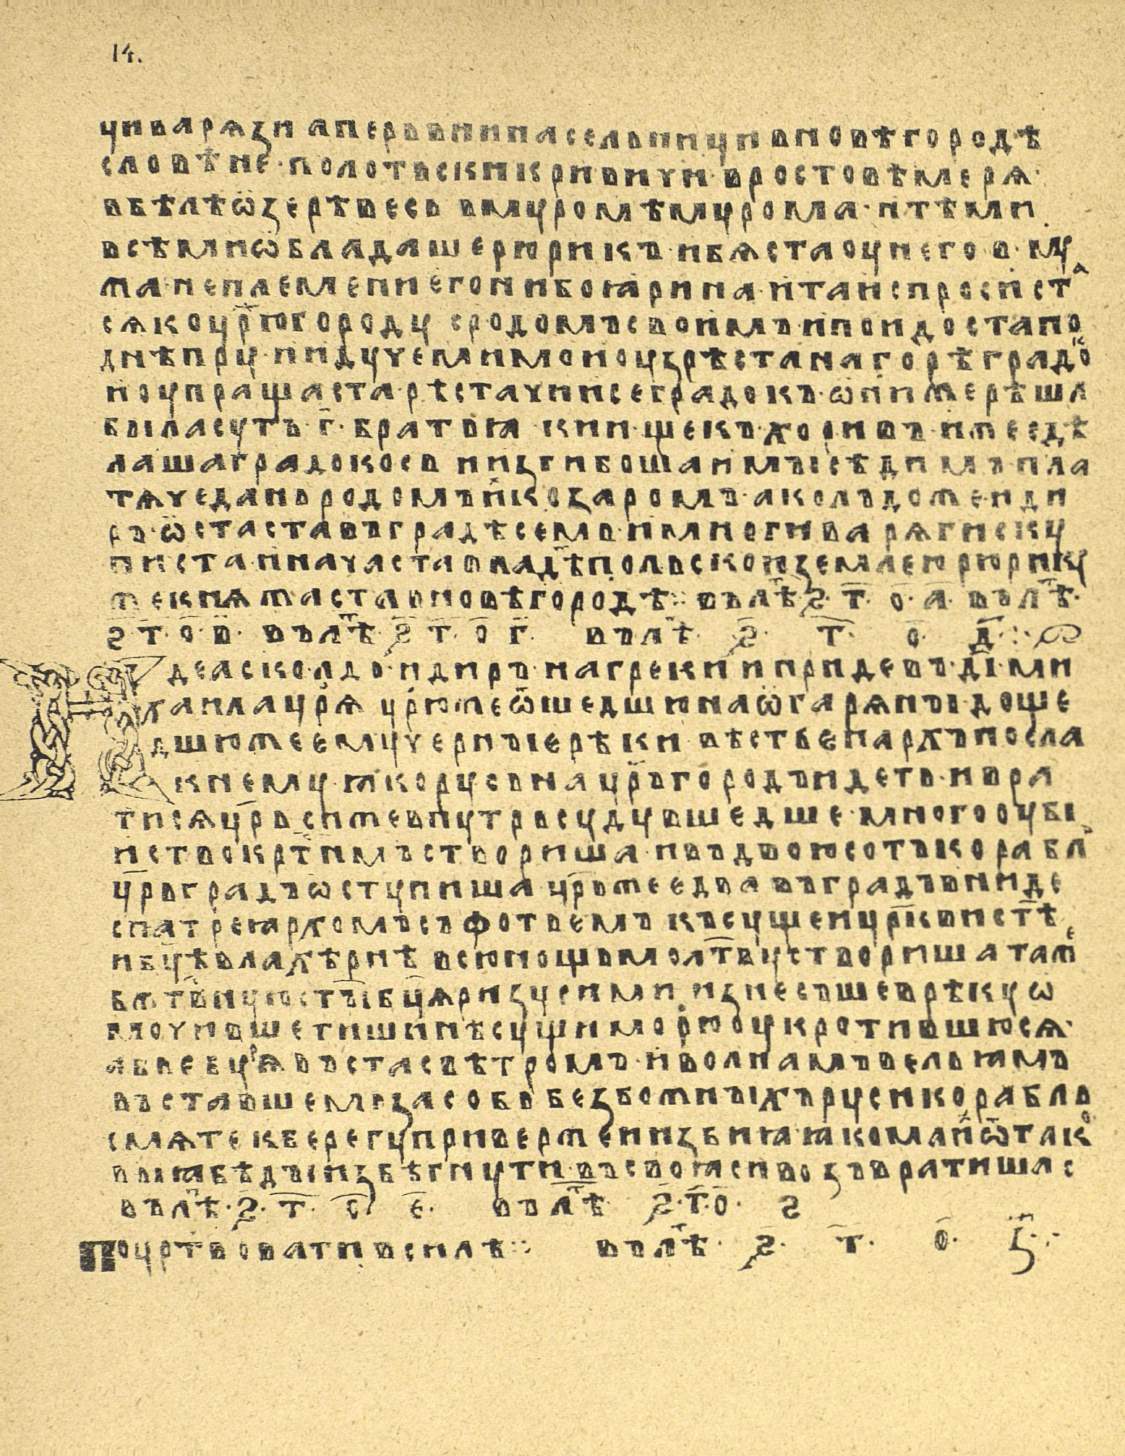 14.
ци варязи а перьвии насельници в новѣгородѣ
словѣне · полотьски кривичи · в ростовѣ меря ·
в бѣлѣѡзерѣ весь в муромѣ мурома · и тѣми
всѣми ѡбладаше рюрикъ · и бяста оу него в · му
жа · не племени его ни боꙗрина · и та испросист
ася ко цр҃югороду с родомъ своимъ и поидоста по
днѣпру · и идуче мимо и оузрѣста на горѣ градо
и оупращаста · рѣста чии се градокъ · ѡни же рѣша
была суть · г҃ · братьꙗ · кии · щекъ · хоривъ · иже сдѣ
лаша градокось и изгибоша и мы сѣдимъ пла
тяче дань родомъ ихъ козаромъ · асколъдо же и ди
ръ · ѡстаста въ градѣ семь · и многи варяги ску
писта · и начаста владѣти польскою землею рюрику
же княжаста в новѣгородѣ ⁘ въ лѣт · ѕ҃ · т҃ · о · а҃ · въ лѣт ·
ѕ҃ · т҃ · о҃ · в҃ · въ лѣт · ѕ҃ · т҃ · о҃ · г҃ · въ лѣт ѕ҃ · т҃ · о҃ · д҃ ·
иде асколдо · и диръ на греки и приде въ · д҃і · ми
хаила цр҃я цр҃ю же ѿшедшю на агаряны · доше
дшю же ему черныерѣки · вѣсть епархъ посла
к нему · ꙗко русь на цр҃ьгородъ идеть · и вра
тися цр҃ь си же внутрь суду вшедше · много оуби
иство крт҃имъ створиша · и въ двоюсотъ корабль
цр҃ьградъ ѡступиша цр҃ь же едва въ градъ вниде
с патреꙗрхомъ съ фотьемъ къ сущеи цр҃кви ст҃ѣ
и бц҃ѣ влахѣрнѣ всю нощь молт҃ву створиша та же
бж҃твную ст҃ы бц҃я ризу с пѣсньми изнесъше в рѣку ѡ
мочивше тишинѣ сущи морю оукротившюся ·
абье буря въста с вѣтромъ · и волнамъ вельꙗмъ
въставшемъ засобь безбожныхъ руси корабль
смяте к берегу приверже и изби ꙗ ꙗко мало ихъ ѿ таков
выꙗ бѣды избѣгнути · въ своꙗси возъвратишас
въ лѣт · ѕ҃ · т҃ · о҃ · е҃ · въ лѣт ѕ҃ · т҃ · о҃ · ѕ
поча цр҃твовати василѣ ⁘ въ лѣт · ѕ҃ · т҃ · о҃ · з҃ ·